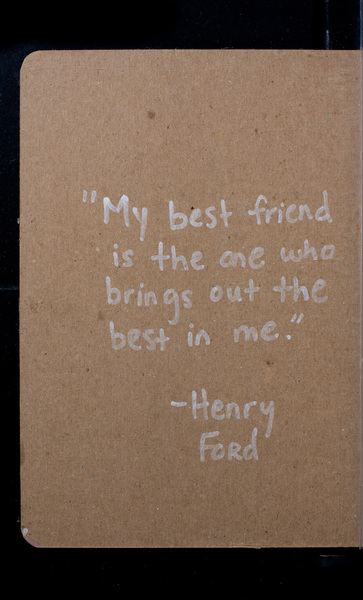 "My best friend
is the one who
brings out the
best in me."
-Henry
FORD